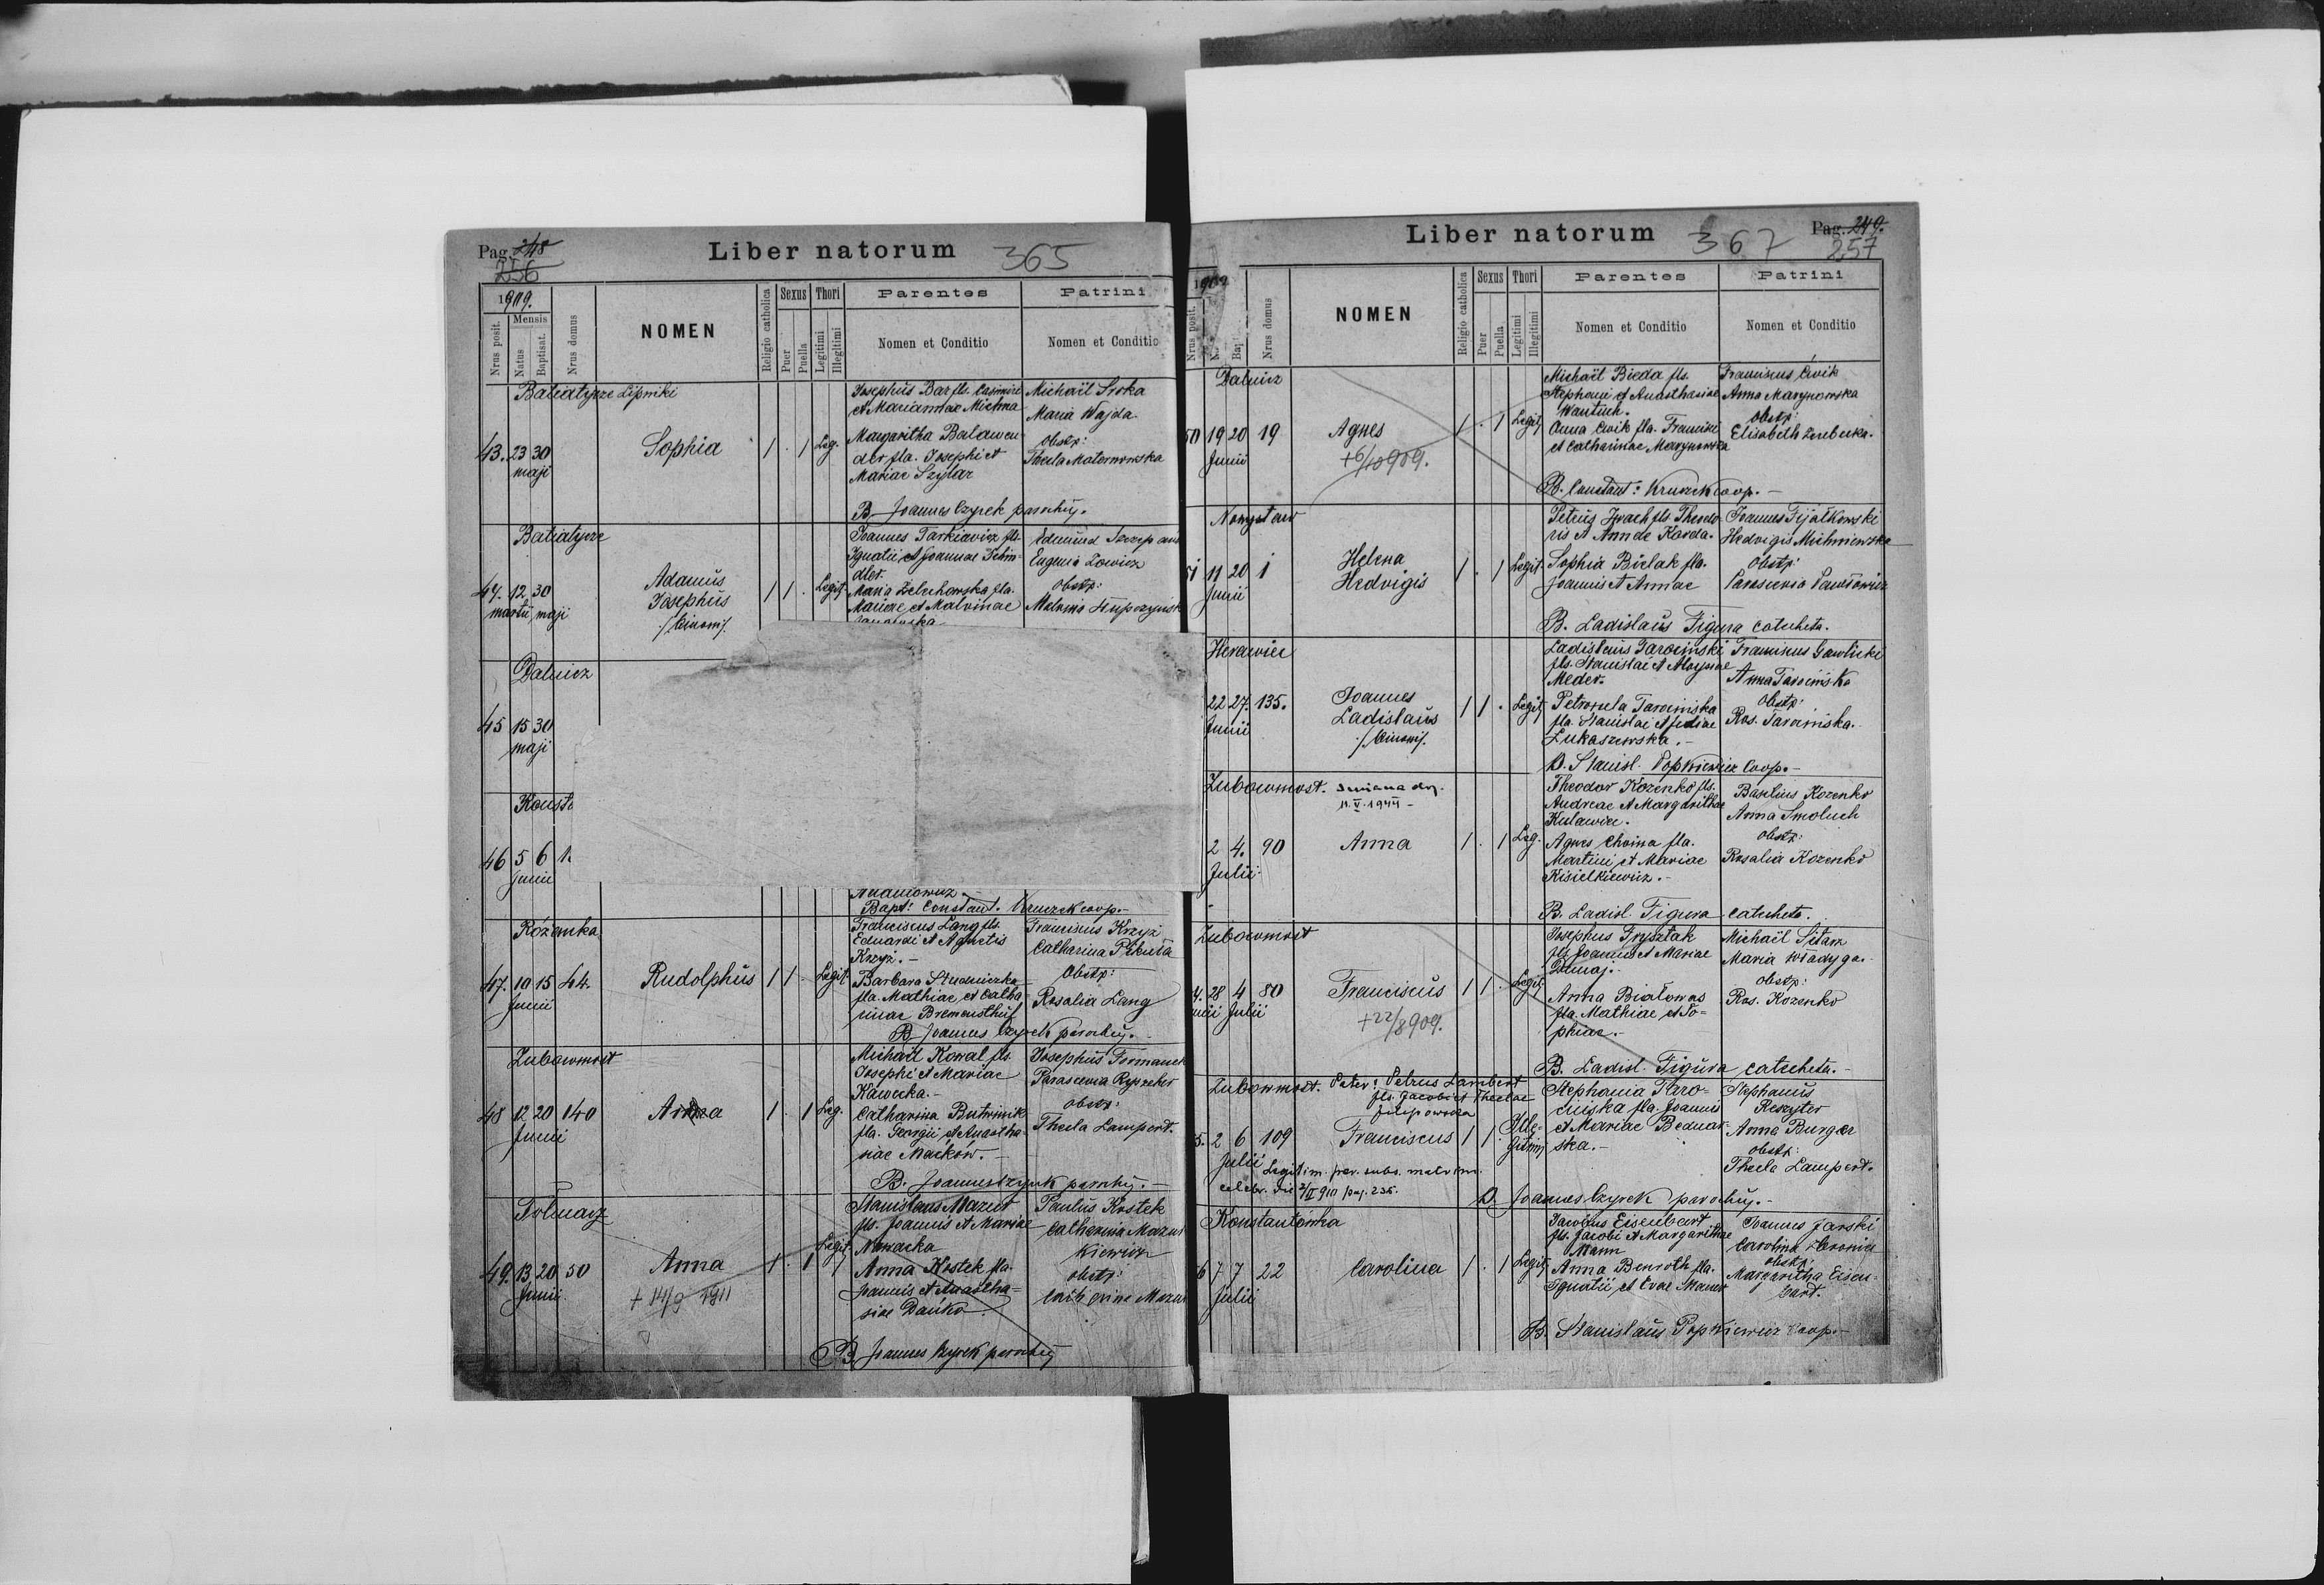 Pag. 248
256
Liber natorum 365
1909.
Nrus posit.
Mensis
Natus
Baptisat.
Nrus domus
NOMEN
Religio catholica
Sexus
Puer
Puella
Thori
Legitimi
Illegitimi
Parentes
Nomen et Conditio
Patrini
Nomen et Conditio
Batiatycze Lipniki
43. 23 30
maji
Sophia
1 . 1 Leg.
Josephus Bar fls. Casimiri
et Mariannae Michna
Margaritha Balawen
der fla. Josephi et
Mariae Szylar
Michaël Sroka
Maria Wajda
Obstp:
Thecla Maternowska
B. Joannes Czyrek parochus.
Batiatycze
44. 12. 30
martii maji
Adamus
Josephus
1 1 . Legit.
Joannes Tarkiewicz fls.
Ignatii et Joannae Schin-
dler.
Maria Zeluchowska fla.
Mariae et Malvinae
Eugenia
Obstp:
Malvina
Dalnicz
45 15 30
maji
Konst
46 5 6
Junii
Bapt: Constant. Kruczek coop.
Różanka
47. 10 15 64.
Junii
Rudolphus
1 1 . Legit.
Franciscus Lang fls.
Eduardi et Agnetis
Krzyż.-
Barbara Studnicka
fla. Mathiae et Catha
rinae
Franciscus Krzyż
Catharina
Obstp:
Rosalia Lang
B. Joannes Czyrek parochus.
Zubowmost
48 12 20 140
Junii
Anna
1 . 1 Leg.
Michaël Kowal fls.
Josephi et Mariae
Kawecka.-
Catharina Butrinik
fla. Georgii et Anastha-
siae Maćkow.-
Josephus Formanek
Parascewia
obstp:
Thecla Lampert.
B. Joannes Czyrek parochus.-
Tołmacz
49. 13 20 50
Junii
Anna
+ 14/9 1911
1 . 1 Legit.
Stanislaus Mazur
fls. Joannis et Mariae
Nawacka
Anna Kostek fla.
Joannis et Anastha-
siae Dańko
Paulus Kostek
Catharina Mazur
kiewicz
obstp:
B. Joannes Czyrek parochus
Liber natorum 367
Pag. 249.
257
1909
Nrus posit.
Nrus domus
NOMEN
Religio catholica
Sexus
Puer
Puella
Thori
Legitimi
Illegitimi
Parentes
Nomen et Conditio
Patrini
Nomen et Conditio
Dalnicz
50 19 20 19
Junii
Agnes
+6/10 909.
1 . 1 Legit.
Michaël Bieda fls.
Stephani et Anasthasiae
Wantuch.
Anna Cwik fla. Francisci
et Catharinae Marynowska
Franciscus Ćwik
Anna Marynowska
Obstp:
Elisabeth
B. Constant: Kruczek coop.-
Nowystaw
51 11 20 1
Junii
Helena
Hedvigis
1 . 1 Legit.
Petrus Iwach fls. Theodo
ris et Annae Korda.
Sophia Bielak fla.
Joannis et Annae
Joannes Fijałkowski
Hedvigis Michniewska
Obstp:
Parascewia Pawłowicz
B. Ladislaus Figura catecheta.
Herawiec
22 27. 135.
Junii
Joannes
Ladislaus
1 1 . Legit.
Ladislaus Tarocinski
fls. Stanislai et
Meder.
Petronela Tarocinska
fla. Stanislai et
Lukaszewska.-
Franciscus Gawlicki
Anna Tarocińska
Obstp:
Ros. Tarocinska.-
B. Stanisl. Popkiewicz Coop.-
Zubowmost.
11.V.1944-
2 4. 90
Julii
Anna
1 . 1 Leg.
Theodor Kozenko fls.
Andreae et Margarithae
Kulawiec.
Agnes Choina fla.
Martini et Mariae
Kisielkiewicz.-
Basilius Kozenko
Anna Smoluch
Obstp:
Rosalia Kozenko
B. Ladisl. Figura catecheta.
Zubowmost
4. 28 4 80
Junii Julii
Franciscus
+22/8 909.
1 1 . Legit.
Josephus Frysztak
fls. Joannis et Mariae
Anna Białowas
fla. Mathiae et So-
phiae.-
Michaël Sitarz
Maria Władyga.
Obstp:
Ros. Kozenko
B. Ladisl. Figura catecheta.-
Zubowmost. Pater: Petrus Lambert
fls. Jacobi et Theclae
5. 2 6 109
Julii
Franciscus
1 1 . Ille-
gitimi
Stephania Taro-
cinska fla. Joannis
et Mariae Bednar-
ska.-
Stephanus
Reszyter
Anna Burger
Obstp:
Thecla Lampert.
Legitim. per. subs. matrim.
celebr. die 2/II 910 pag. 235.
B. Joannes Czyrek parochus.-
Konstantówka
6 7 7 22
Julii
Carolina
1 . 1 Legit.
Jacobus Eisenbart
fls. Jacobi et Margarithae
Mann
Anna Benroth fla.
Ignatii et Evae Mauer
Joannes Jarski
Carolina
Obstp:
Margaritha Eisen-
bart.
B. Stanislaus Popkiewicz Coop.-